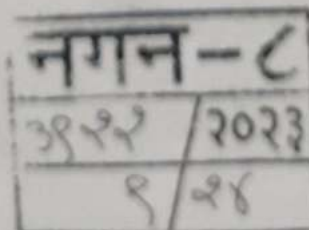 नगन-८
३९२२/२०२३
९/२४